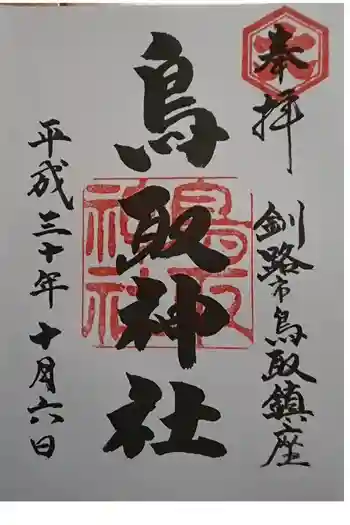 奉拝
釧路市鳥取鎮座
鳥取神社
鳥取
神社
平成三十年十月六日